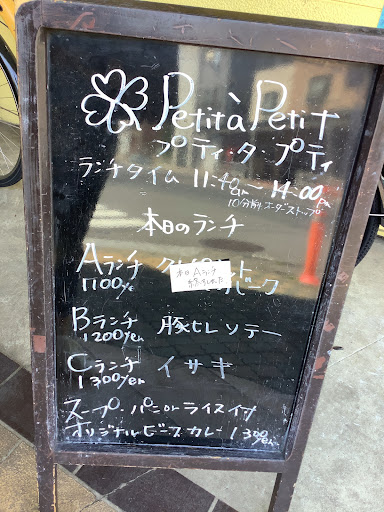 Petit à Petit
プティ・タ・プティ
ランチタイム 11:40am～14:00Pm
10分前オーダーストップ
本日のランチ
Aランチ
1100ye
本日Aランチ
Bランチ 豚ヒレソテー
1200yen
Cランチ イサキ
1300yen
スープ・パンorライス付
オリジナルビーフカレー 1300yen